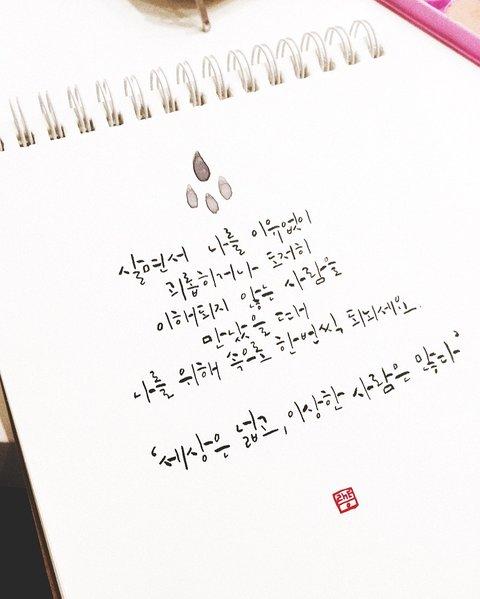 살면서 나를 이유없이
괴롭히거나 도저히
이해되지 않는 사람을
만났을 때
나를 위해 속으로 한번씩 되뇌세요.
'세상은 넓고, 이상한 사람은 많다'